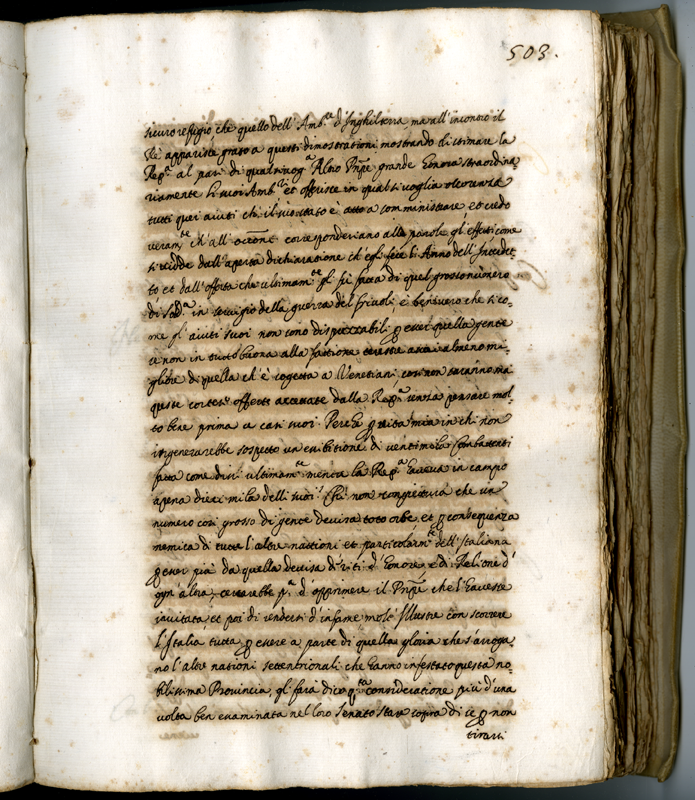 503.
sicuro refugio, che quello dell' Amb.re d'Inghilterra ma all' incontro il
Rè apparisce grato a questi dimostrationi mostrando di stimare la
Rep.ca al pari di qualsivog.a Altro Pñpe grande honora straordina
riamente li suoi Amb.ri et offerisce in qualsivoglia occorenza
tutti quei aiuti che il suo stato è atto a somministrare et credo
veram.te ch' all' occõne corresponderiano alle parole gl' effetti come
si vidde dall' aperta dichiaratione ch' egli fece l' Anno dell' Interdet-
to et dall' offerta che ultimam.te gl' fù fatta di quel grosso numero
di Sod.ti in servigio della guerra del Friuli, è ben vero che si co-
me gl' aiuti suoi non sono disprezzabili p esser quella gente
se non in tutto buona alla fattione almeno mi-
gliore di quella ch' è soggetta a Venetiani così non saranno mà
queste cortesi offerte accettate dalla Rep.ca senza pensare mol
to bene prima a casi suoi. Perche p vita mia in chi non
ingenerarebbe sospetto un' esibitione di ventimila Combattenti
fatta come dissi ultimam.te mentre la Rep.ca haveva in campo
apena dieci mila delli suoi? Chi non congiettura che un
numero così grosso di gente devisa toto orbe, et p consequenza
nemica di tutte l' altre nattioni et particolarm.te dell' Italiana
p esser più da quella devisa di riti d' honore e di Relione d'
ogn' altra, cercarebbe p.a d' opprimere il Pñpe che l' havesse
invitata, et poi di rendersi d' infame mole Illustre con scorrere
l' Italia tutta p essere a parte di quella gloria che s' arroga
no l' altre nationi settentrionali che hanno infestato questa no-
bilissima Provincia, gl' farà dico q.ta consideratione più d' una
volta ben esaminata nel loro Senato stare sopra di se p non
tirarsi